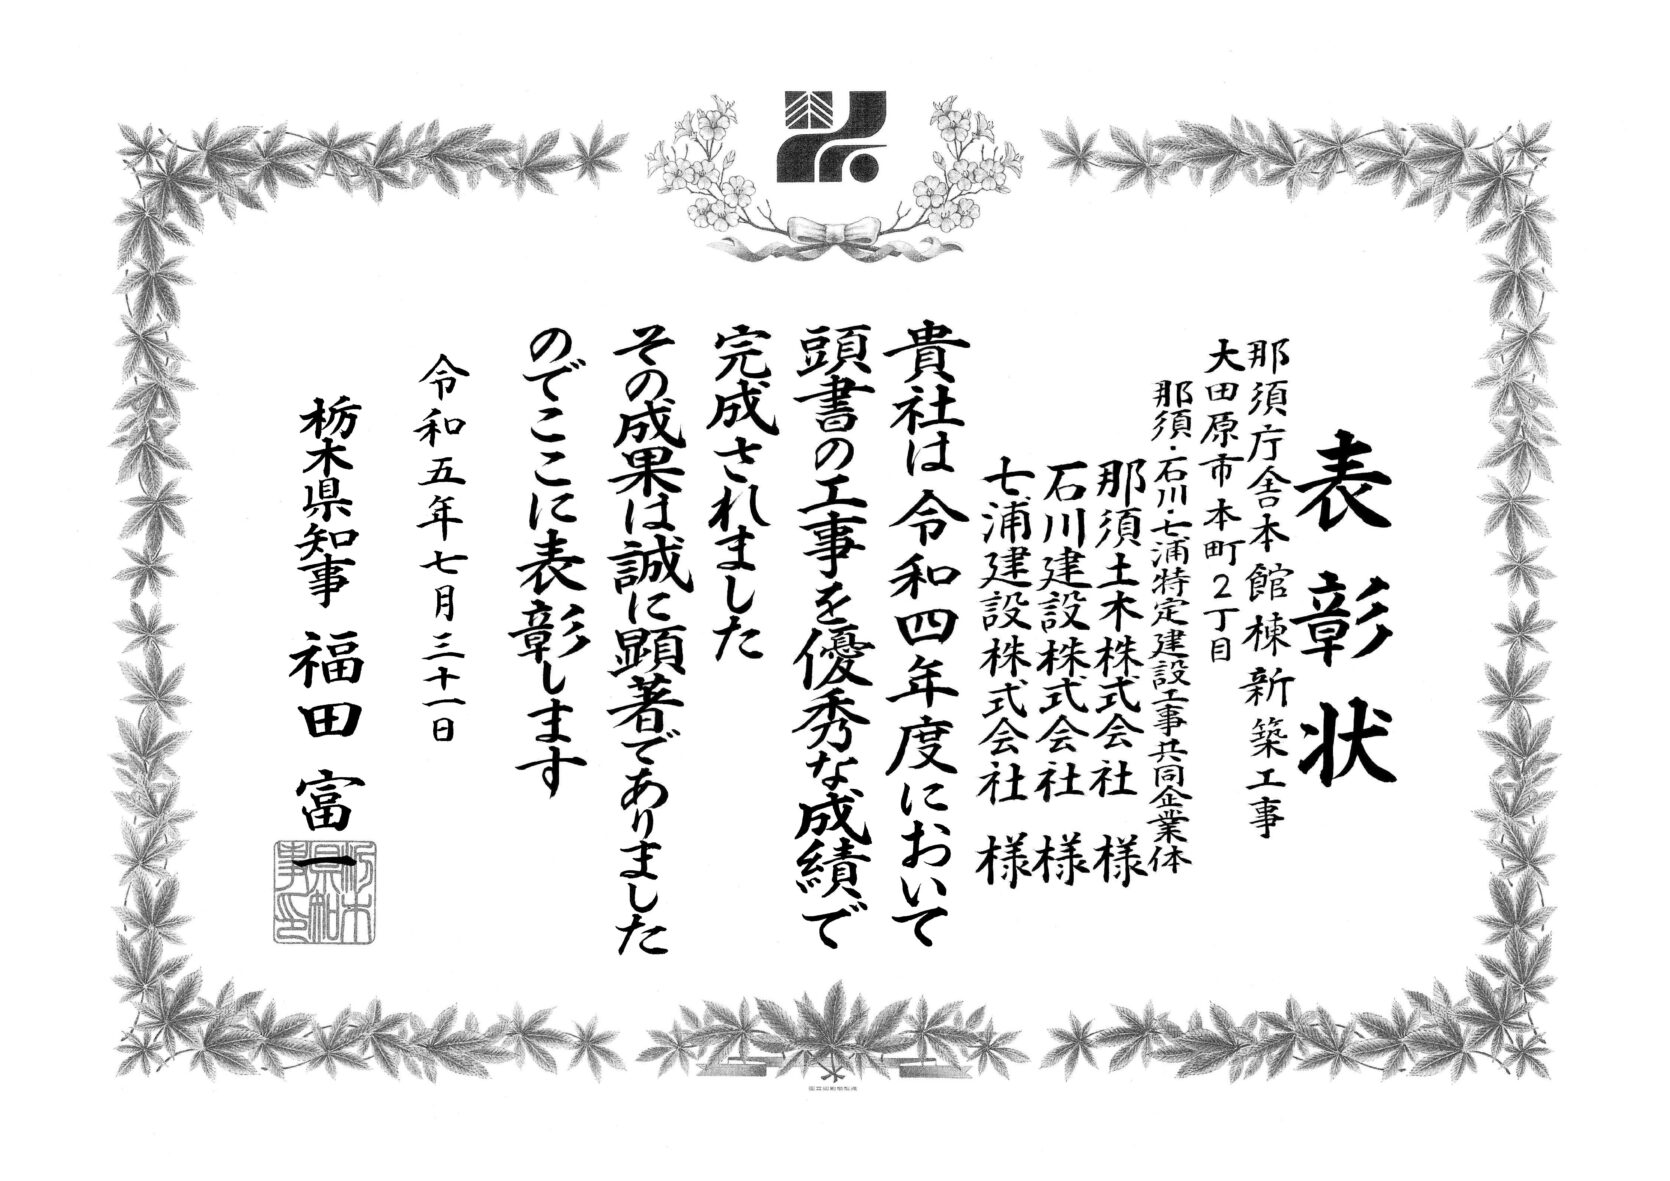 表彰状
那須庁舎本館棟新築工事
大田原市本町2丁目
那須・石川・七浦特定建設工事共同企業体
那須土木株式会社 様
石川建設株式会社 様
七浦建設株式会社 様
貴社は令和四年度において
頭書の工事を優秀な成績で
完成されました
その成果は誠に顕著でありました
のでここに表彰します
令和五年七月三十一日
栃木県知事 福田富一
栃木県知事印